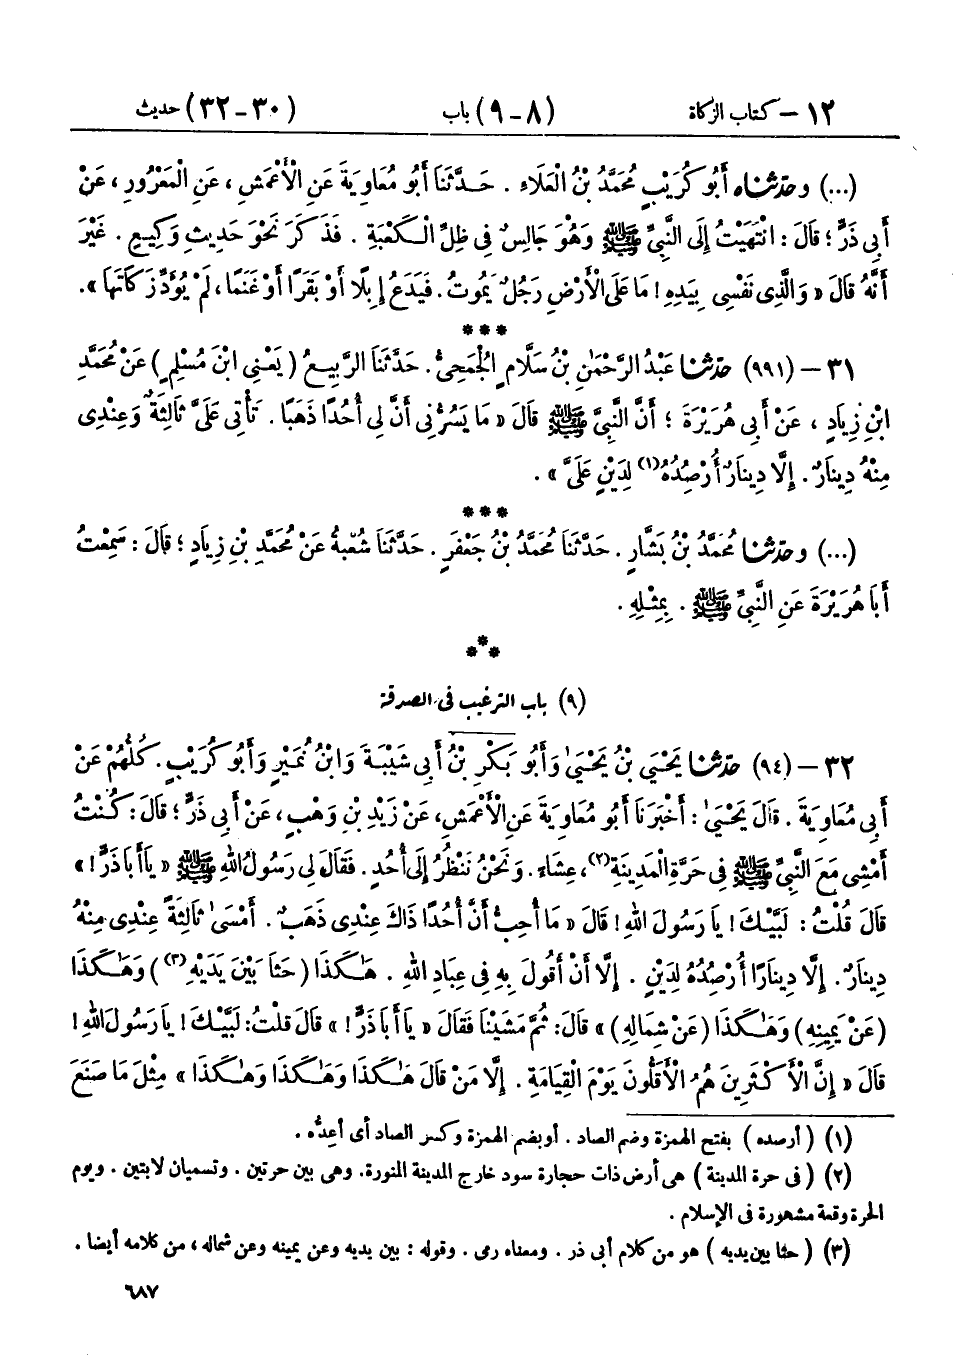 ١٢ – كتاب الزكاة (٨ – ٩) باب (٣٠ – ٣٢) حديث
(...) وحدثناه أَبُو كُرَيْبٍ مُحَمَّدُ بْنُ الْعَلَاءِ . حَدَّثَنَا أَبُو مُعَاوِيَةَ عَنِ الْأَعْمَشِ ، عَنِ الْمَعْرُورِ ، عَنْ
أَبِي ذَرٍّ ؛ قَالَ : انْتَهَيْتُ إِلَى النَّبِيِّ ﷺ وَهُوَ جَالِسٌ فِي ظِلِّ الْكَعْبَةِ . فَذَكَرَ نَحْوَ حَدِيثِ وَكِيعٍ . غَيْرَ
أَنَّهُ قَالَ « وَالَّذِي نَفْسِي بِيَدِهِ ! مَا عَلَى الْأَرْضِ رَجُلٌ يَمُوتُ . فَيَدَعُ إِبِلًا أَوْ بَقَرًا أَوْ غَنَمًا ، لَمْ يُؤَدِّ زَكَاتَهَا » .
***
٣١ – (٩٩١) حدثنا عَبْدُ الرَّحْمٰنِ بْنُ سَلَّامٍ الْجُمَحِيُّ . حَدَّثَنَا الرَّبِيعُ ( يَعْنِي ابْنَ مُسْلِمٍ ) عَنْ مُحَمَّدِ
ابْنِ زِيَادٍ ، عَنْ أَبِي هُرَيْرَةَ ؛ أَنَّ النَّبِيَّ ﷺ قَالَ « مَا يَسُرُّنِي أَنَّ لِي أُحُدًا ذَهَبًا . تَأْتِي عَلَيَّ ثَالِثَةٌ وَعِنْدِي
مِنْهُ دِينَارٌ . إِلَّا دِينَارٌ أُرْصِدُهُ(١) لِدَيْنٍ عَلَيَّ » .
***
(...) وحدثنا مُحَمَّدُ بْنُ بَشَّارٍ . حَدَّثَنَا مُحَمَّدُ بْنُ جَعْفَرٍ . حَدَّثَنَا شُعْبَةُ عَنْ مُحَمَّدِ بْنِ زِيَادٍ ؛ قَالَ : سَمِعْتُ
أَبَا هُرَيْرَةَ عَنِ النَّبِيِّ ﷺ . بِمِثْلِهِ .
***
(٩) باب الترغيب فى الصدقة
٣٢ – (٩٤) حدثنا يَحْيَى بْنُ يَحْيَىٰ وَأَبُو بَكْرِ بْنُ أَبِي شَيْبَةَ وَابْنُ نُمَيْرٍ وَأَبُو كُرَيْبٍ . كُلُّهُمْ عَنْ
أَبِي مُعَاوِيَةَ . قَالَ يَحْيَىٰ : أَخْبَرَنَا أَبُو مُعَاوِيَةَ عَنِ الْأَعْمَشِ ، عَنْ زَيْدِ بْنِ وَهْبٍ ، عَنْ أَبِي ذَرٍّ ؛ قَالَ : كُنْتُ
أَمْشِي مَعَ النَّبِيِّ ﷺ فِي حَرَّةِ الْمَدِينَةِ(٢) ، عِشَاءً . وَنَحْنُ نَنْظُرُ إِلَى أُحُدٍ . فَقَالَ لِي رَسُولُ اللهِ ﷺ « يَا أَبَا ذَرٍّ ! »
قَالَ قُلْتُ : لَبَّيْكَ ! يَا رَسُولَ اللهِ ! قَالَ « مَا أُحِبُّ أَنَّ أُحُدًا ذَاكَ عِنْدِي ذَهَبٌ . أَمْسَىٰ ثَالِثَةً عِنْدِي مِنْهُ
دِينَارٌ . إِلَّا دِينَارًا أُرْصِدُهُ لِدَيْنٍ . إِلَّا أَنْ أَقُولَ بِهِ فِي عِبَادِ اللهِ . هٰكَذَا ( حَثَا بَيْنَ يَدَيْهِ (٣) ) وَهٰكَذَا
( عَنْ يَمِينِهِ ) وَهٰكَذَا ( عَنْ شِمَالِهِ ) » قَالَ : ثُمَّ مَشَيْنَا فَقَالَ « يَا أَبَا ذَرٍّ ! » قَالَ قُلْتُ : لَبَّيْكَ ! يَا رَسُولَ اللهِ !
قَالَ « إِنَّ الْأَكْثَرِينَ هُمُ الْأَقَلُّونَ يَوْمَ الْقِيَامَةِ . إِلَّا مَنْ قَالَ هٰكَذَا وَهٰكَذَا وَهٰكَذَا » مِثْلَ مَا صَنَعَ
(١) ( أرصده ) بفتح الهمزة وضم الصاد . أو بضم الهمزة وكسر الصاد أى أعدّه .
(٢) ( فى حرة المدينة ) هى أرض ذات حجارة سود خارج المدينة المنورة . وهى بين حرتين . وتسميان لابتين . ويوم
الحرة وقعة مشهورة فى الإسلام .
(٣) ( حثا بين يديه ) هو من كلام أبى ذر . ومعناه رمى . وقوله : بين يديه وعن يمينه وعن شماله ، من كلامه أيضا .
٦٨٧